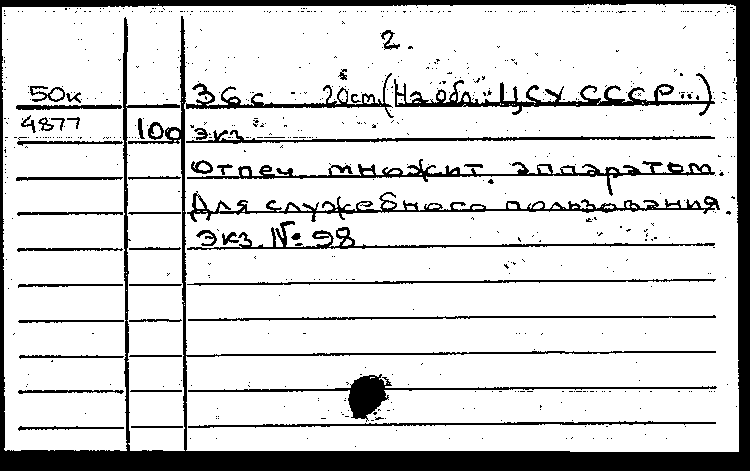 2.
50к 36 с. 20cm. (На обл.: ЦСУ СССР...)
4877 100 экз.
Отпеч. множит. аппаратом.
Для служебного пользования.
Экз. № 98.